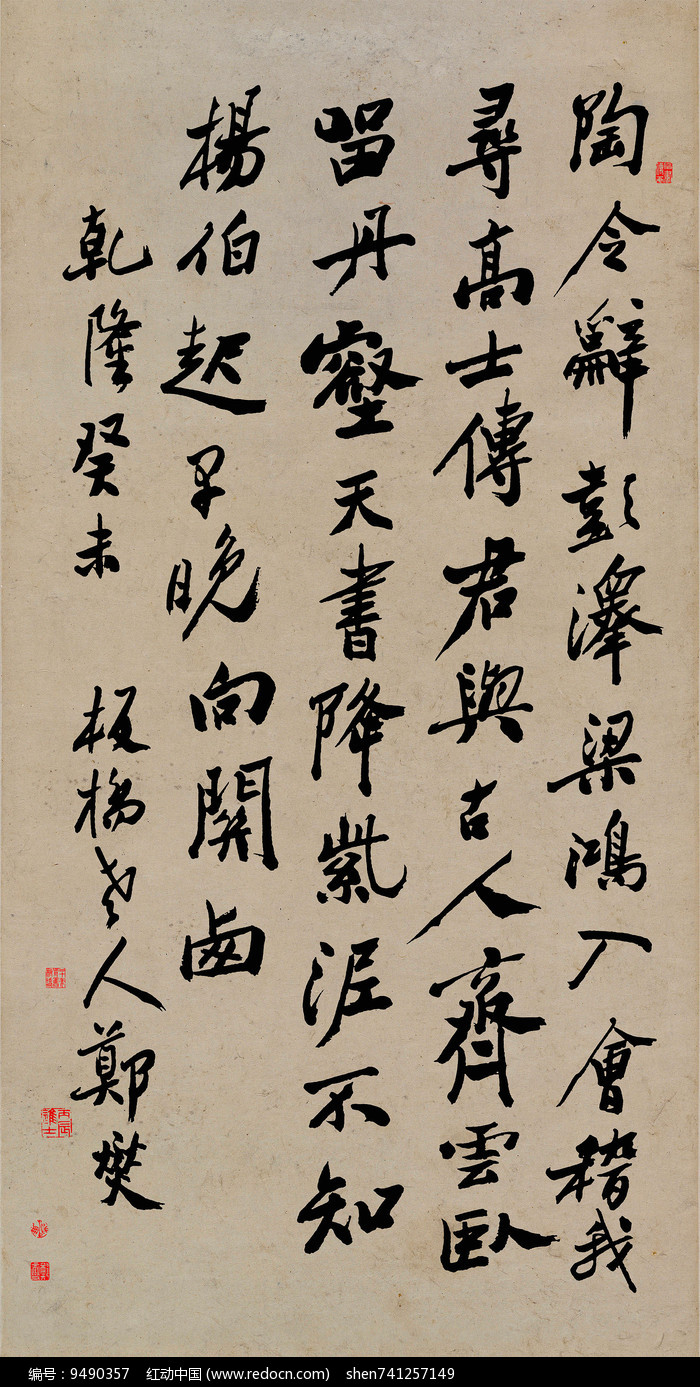 陶令辭彭澤梁鴻入會稽我
尋高士傳君與古人齊雲臥
留丹壑天書降紫泥不知
楊伯起早晚向關西
乾隆癸未 板橋老人鄭燮
编号：9490357 红动中国 (www.redocn.com) shen741257149